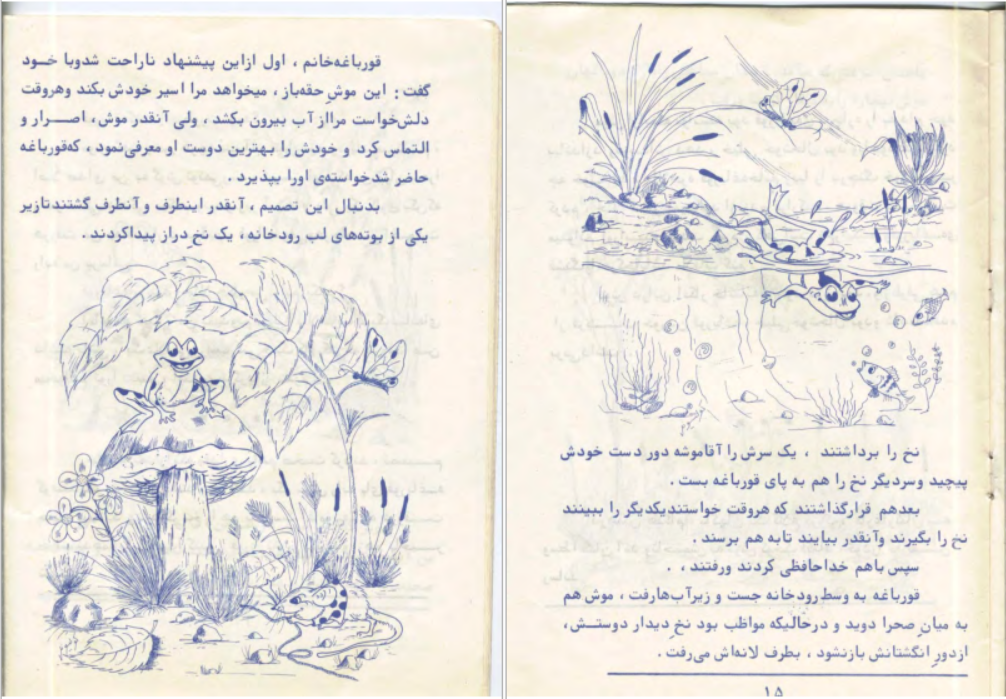 قورباغه‌خانم ، اول ازاین پیشنهاد ناراحت شدوبا خـود
گفت : این موشِ حقه‌باز ، میخواهد مرا اسیر خودش بکند وهروقت
دلش‌خواست مرااز آب بیرون بکشد ، ولی آنقدر موش، اصـــرار و
التماس کرد و خودش را بهترین دوست او معرفی‌نمود ، که‌قورباغه
حاضر شد خواسته‌ی اورا بپذیرد .
بدنبال این تصمیم ، آنقدر اینطرف و آنطرف گشتند تازیر
یکی از بوته‌های لب رودخانه، یک نخِ دراز پیداکردند .
نخ را برداشتند ، یک سرش را آقاموشه دور دست خودش
پیچید وسردیگر نخ را هم به پای قورباغه بست .
بعدهم قرارگذاشتند که هروقت خواستندیکدیگر را ببینند
نخ را بگیرند وآنقدر بیایند تابه هم برسند .
سپس باهم خداحافظی کردند ورفتند ، .
قورباغه به وسط رودخانه جست و زیرآب‌هارفت ، موش هم
به میانِ صحرا دوید و درحالیکه مواظب بود نخِ دیدار دوستــش،
ازدورِ انگشتانش بازنشود ، بطرف لانه‌اش می‌رفت .
۱۵